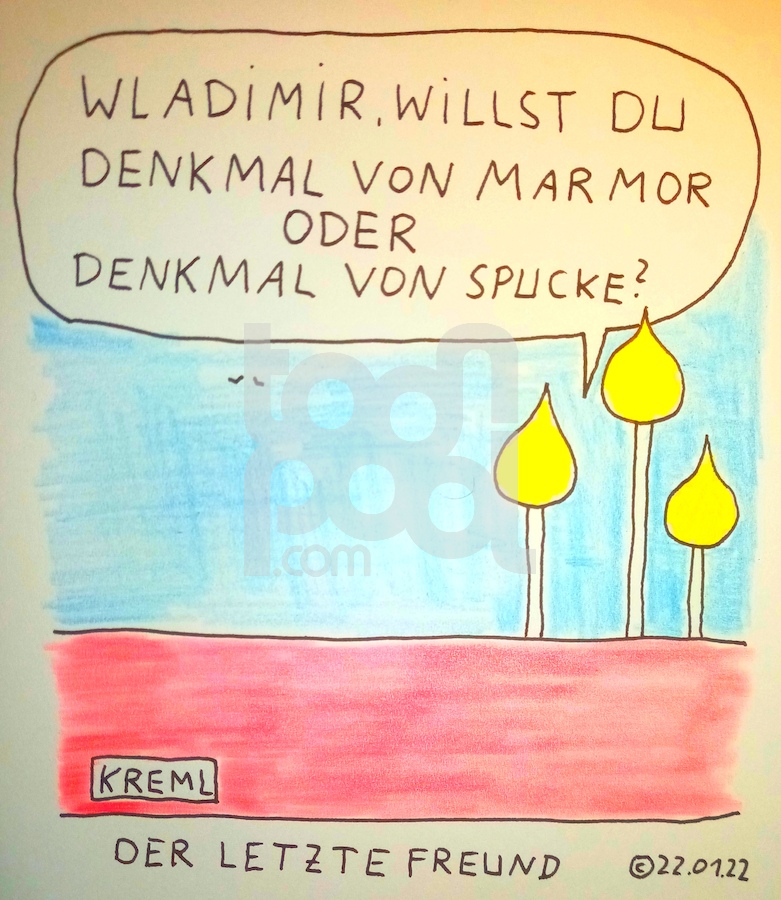 WLADiMiR, WiLLST DU
DENKMAL VON MARMOR
ODER
DENKMAL VON SPUCKE?
toon
pool
.com
KREML
DER LETZTE FREUND ©22.01.22